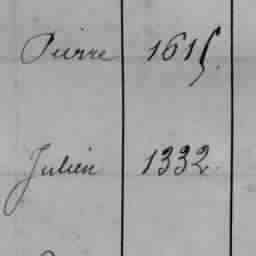 Pierre 1615
Julien 1332